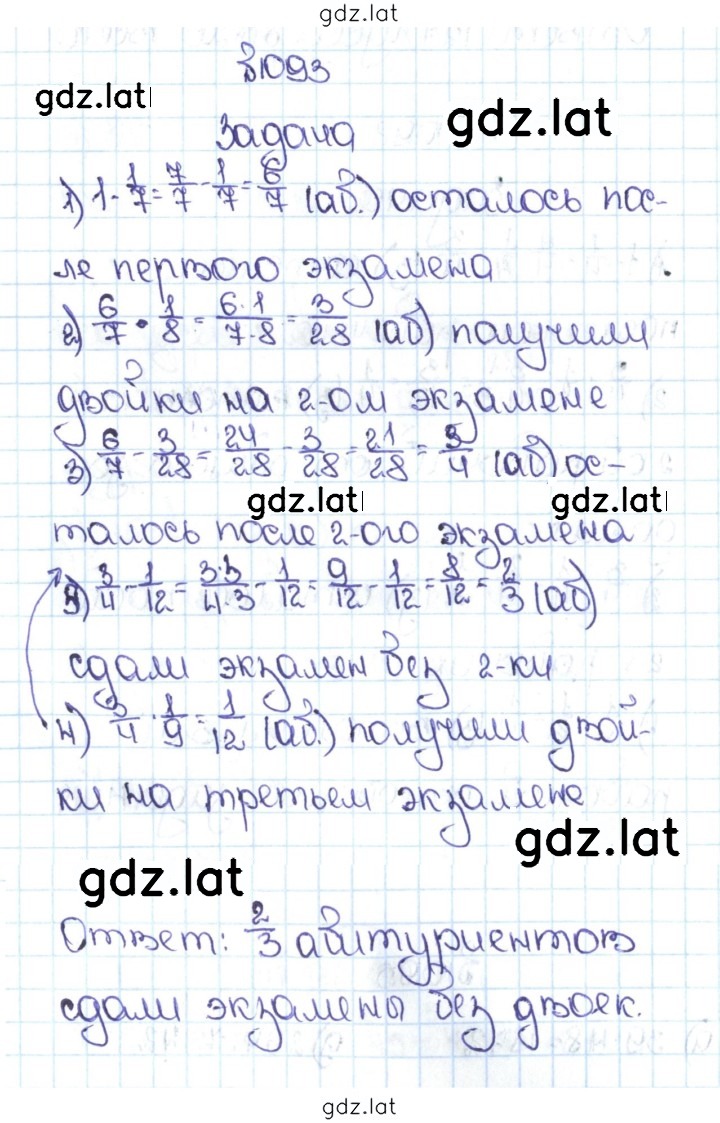 gdz.lat
№1093
gdz.lat
gdz.lat
Задача
1) 1 - 1/7 = 7/7 - 1/7 = 6/7 (аб.) осталось пос-
ле первого экзамена
2) 6/7 · 1/8 = 6·1/7·8 = 3/28 (аб) получили
двойки на 2-ом экзамене
3) 6/7 - 3/28 = 24/28 - 3/28 = 21/28 = 3/4 (аб) ос-
gdz.lat
gdz.lat
талось после 2-ого экзамена
5) 3/4 - 1/12 = 3·3/4·3 - 1/12 = 9/12 - 1/12 = 8/12 = 2/3 (аб)
сдали экзамен без 2-ки
4) 3/4 · 1/9 = 1/12 (аб.) получили двой-
ки на третьем экзамене
gdz.lat
gdz.lat
Ответ: 2/3 абитуриентов
сдали экзамены без двоек.
gdz.lat